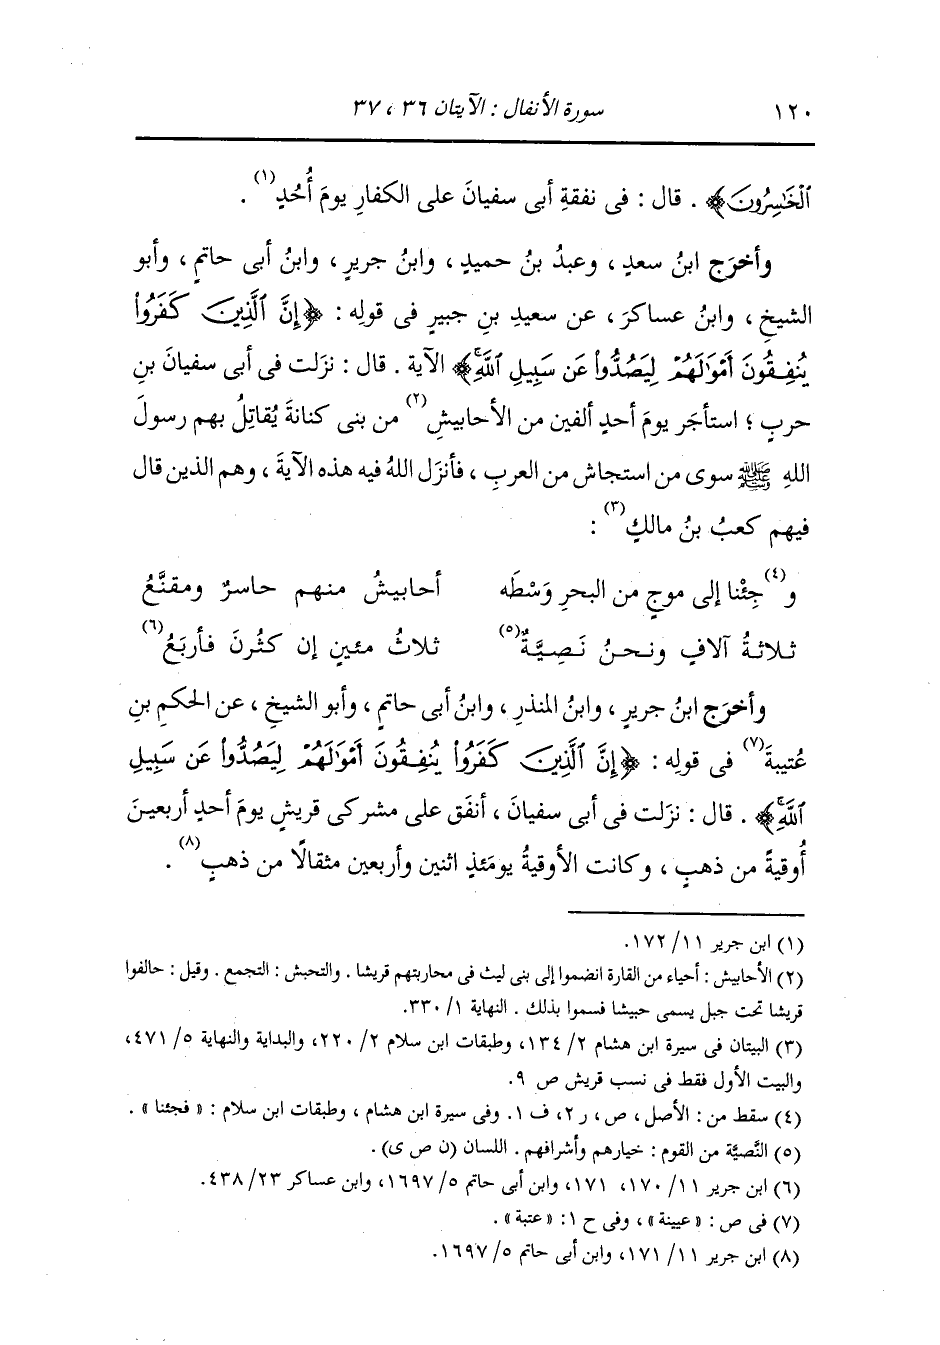 ١٢٠ سورة الأنفال : الآيتان ٣٦ ، ٣٧
ٱلْخَٰسِرُونَ﴾ . قال : فى نفقةِ أبى سفيانَ على الكفارِ يومَ أُحُدٍ(١) .
وأخرَج ابنُ سعدٍ ، وعبدُ بنُ حميدٍ ، وابنُ جريرٍ ، وابنُ أبى حاتمٍ ، وأبو
الشيخِ ، وابنُ عساكرَ ، عن سعيدِ بنِ جبيرٍ فى قولِه : ﴿إِنَّ ٱلَّذِينَ كَفَرُوا۟
يُنفِقُونَ أَمْوَٰلَهُمْ لِيَصُدُّوا۟ عَن سَبِيلِ ٱللَّهِۚ﴾ الآية . قال : نزَلت فى أبى سفيانَ بنِ
حربٍ ؛ استأجَر يومَ أحدٍ ألفين من الأحابيشِ(٢) من بنى كنانةَ يُقاتِلُ بهم رسولَ
اللهِ ﷺ سوى من استجاش من العربِ ، فأنزَل اللهُ فيه هذه الآيةَ ، وهم الذين قال
فيهم كعبُ بنُ مالكٍ(٣) :
و(٤)جِئْنا إلى موجٍ من البحرِ وَسْطَه أحابيشُ منهم حاسرٌ ومقنَّعُ
ثلاثةُ آلافٍ ونحنُ نَصِيَّةٌ(٥) ثلاثُ مئينٍ إن كثُرنَ فأربَعُ(٦)
وأخرَج ابنُ جريرٍ ، وابنُ المنذرِ ، وابنُ أبى حاتمٍ ، وأبو الشيخِ ، عن الحكمِ بنِ
عُتيبةَ(٧) فى قولِه : ﴿إِنَّ ٱلَّذِينَ كَفَرُوا۟ يُنفِقُونَ أَمْوَٰلَهُمْ لِيَصُدُّوا۟ عَن سَبِيلِ
ٱللَّهِۚ﴾ . قال : نزَلت فى أبى سفيانَ ، أنفَق على مشركى قريشٍ يومَ أحدٍ أربعينَ
أُوقيةً من ذهبٍ ، وكانت الأوقيةُ يومَئذٍ اثنين وأربعين مثقالًا من ذهبٍ(٨) .
(١) ابن جرير ١١/ ١٧٢.
(٢) الأحابيش : أحياء من القارة انضموا إلى بنى ليث فى محاربتهم قريشا . والتحبش : التجمع . وقيل : حالفوا
قريشا تحت جبل يسمى حبيشا فسموا بذلك . النهاية ١/ ٣٣٠.
(٣) البيتان فى سيرة ابن هشام ٢/ ١٣٤، وطبقات ابن سلام ٢/ ٢٢٠، والبداية والنهاية ٥/ ٤٧١،
والبيت الأول فقط فى نسب قريش ص ٩.
(٤) سقط من : الأصل ، ص ، ر ٢، ف ١. وفى سيرة ابن هشام ، وطبقات ابن سلام : « فجئنا » .
(٥) النَّصيَّة من القوم : خيارهم وأشرافهم . اللسان (ن ص ى) .
(٦) ابن جرير ١١/ ١٧٠، ١٧١، وابن أبى حاتم ٥/ ١٦٩٧، وابن عساكر ٢٣/ ٤٣٨.
(٧) فى ص : « عيينة » ، وفى ح ١: « عتبة » .
(٨) ابن جرير ١١/ ١٧١، وابن أبى حاتم ٥/ ١٦٩٧.